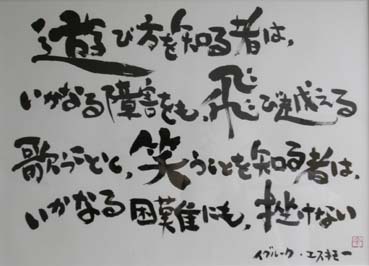 遊び方を知る者は、
いかなる障害をも、飛び越える
歌うことと、笑うことを知る者は、
いかなる困難にも、挫けない
イグルーク・エスキモー